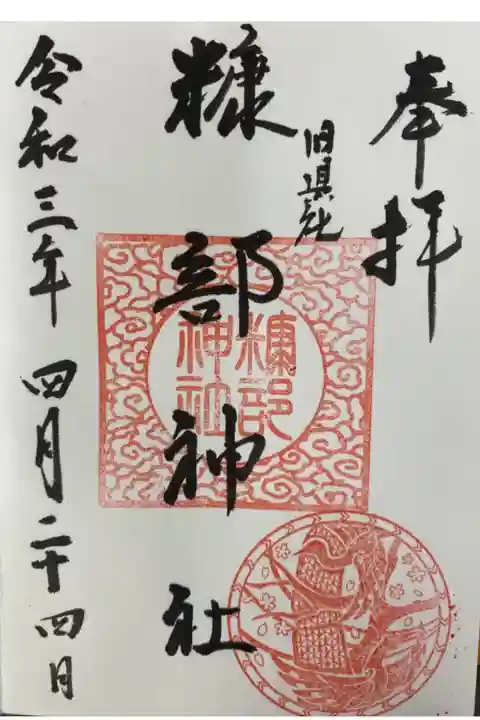 奉拝
旧県社
糠部神社
糠部
神社
令和三年 四月二十四日